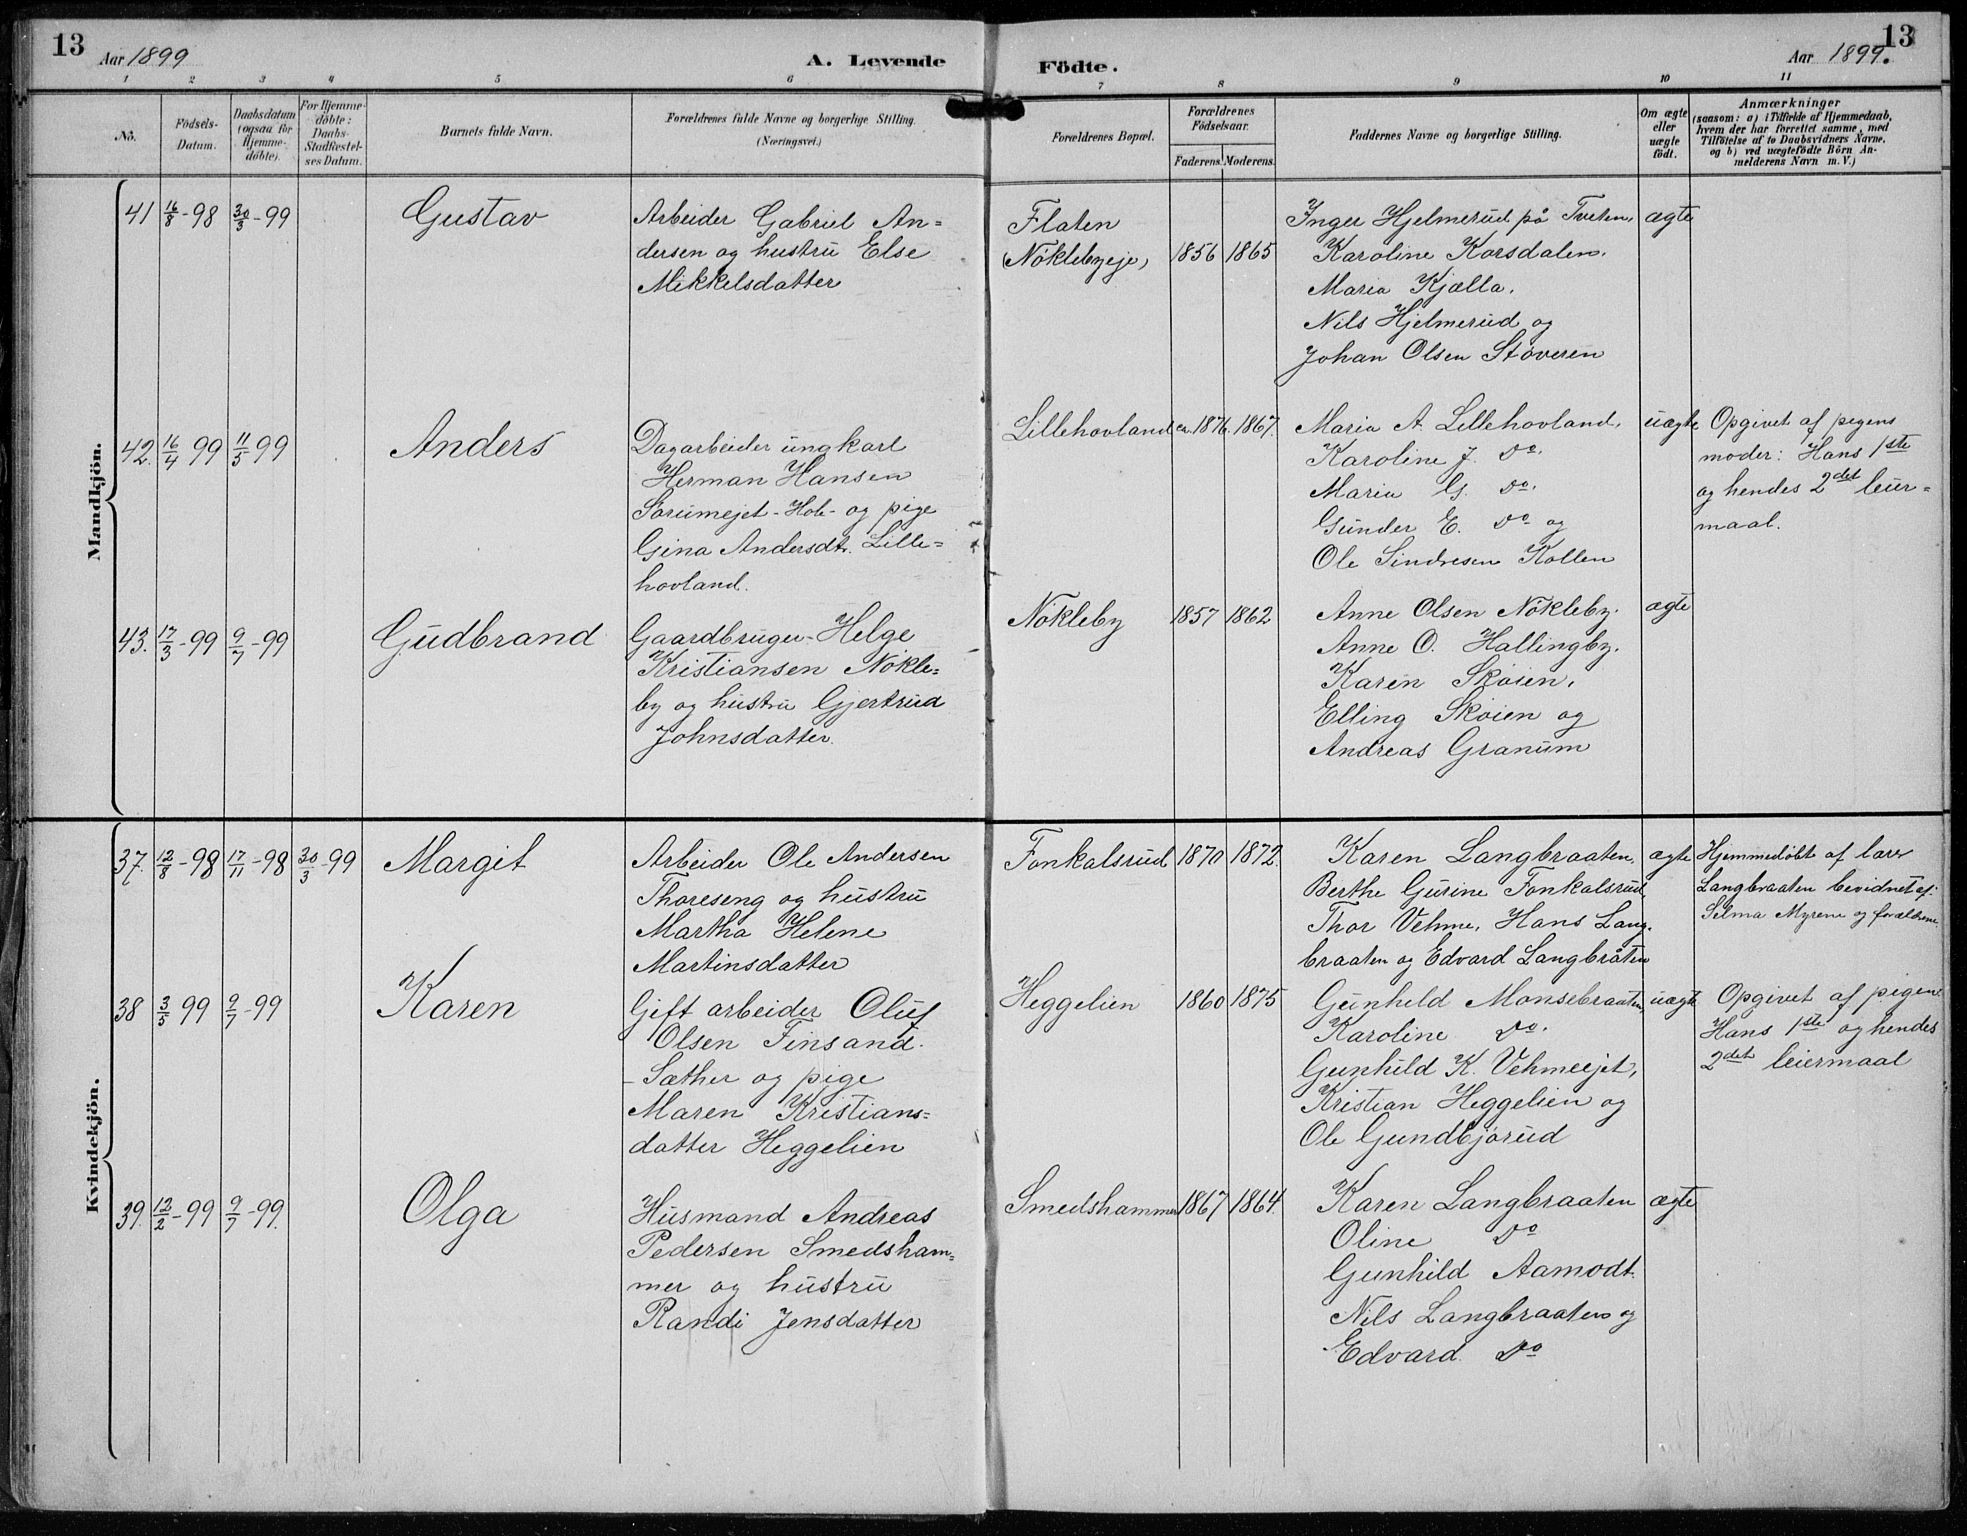 13
Aar 1899
A. Levende
Födte.
Aar 1899.
13
1 2 3 4 5 6 7 8 9 10 11
No.
Födsels-
Datum.
Daabsdatum
(ogsaa for
Hjemme-
döbte).
For Hjemme-
döbte:
Daabs-
Stadfæstel-
ses Datum.
Barnets fulde Navn.
Forældrenes fulde Navne og borgerlige Stilling.
(Næringsvei.)
Forældrenes Bopæl.
Forældrenes
Födselsaar.
Faderens. Moderens.
Faddernes Navne og borgerlige Stilling.
Om ægte
eller
uægte
födt.
Anmærkninger
(saasom: a) i Tilfælde af Hjemmedaab,
hvem der har forrettet samme, med
Tilföielse af to Daabsvidners Navne,
og b) ved uægtefödte Börn An-
melderens Navn m. V.)
Mandkjön.
41 16/8-98 30/3-99
Gustav
Arbeider Gabriel An=
dersen og hustru Else
Mikkelsdatter
Flaten
(Nökleby eje)
1856 1865
Inger Hjelmerud på Tveten.
Karoline Korsdalen.
Maria Kjælla.
Nils Hjelmerud og
Johan Olsen Stöveren
ægte
42. 16/4 99 11/5 99
Anders
Dagarbeider ungkarl
Herman Hansen
Sörumejet - Hole - og pige
Gina Andersdtr. Lille=
hovland.
Lillehovland
ca. 1876. 1867.
Maria A. Lillehovland.
Karoline J. Do.
Maria G. Do.
Gunder E. Do og
Ole Sindresen Kollen
uægte
Opgivet af pigens
moder: Hans 1ste
og hendes 2det leier=
maal.
43. 17/3-99 9/7-99
Gudbrand
Gaardbruger Helge
Kristiansen Nökle=
by og hustru Gjertrud
Johnsdatter.
Nökleby
1857 1862
Anne Olsen Nökleby.
Anne O. Hallingby.
Karen Sköien.
Elling Sköien og
Andreas Granum
ægte
Kvindekjön.
37. 12/8-98 17/11-98 30/3-99
Margit
Arbeider Ole Andersen
Thoreseng og hustru
Martha Helene
Martinsdatter
Fonkalsrud
1870 1872.
Karen Langbraaten.
Berthe Gurine Fonkalsrud,
Thor Vehme, Hans Lang-
braaten og Edvard Langbråten
ægte
Hjemmedöbt af lærer
Langbraaten bevidnet af:
Selma Myrene og forældrene.
38 3/5 99 9/7-99
Karen
Gift arbeider Oluf
Olsen Finsand.
- Sæther og pige
Maren Kristians=
datter Heggelien
Heggelien
1860 1875
Gunhild Monsebraaten,
Karoline Do.
Gunhild K. Vehmeejet,
Kristian Heggelien og
Ole Gundbjörud
uægte
Opgivet af pigen
Hans 1ste og hendes
2det leiermaal
39. 12/2-99 9/7-99.
Olga
Husmand Andreas
Pedersen Smedsham=
mer og hustru
Randi Jensdatter
Smedshammer
1867 1864.
Karen Langbraaten
Oline Do
Gunhild Aamodt.
Nils Langbraaten og
Edvard Do
ægte